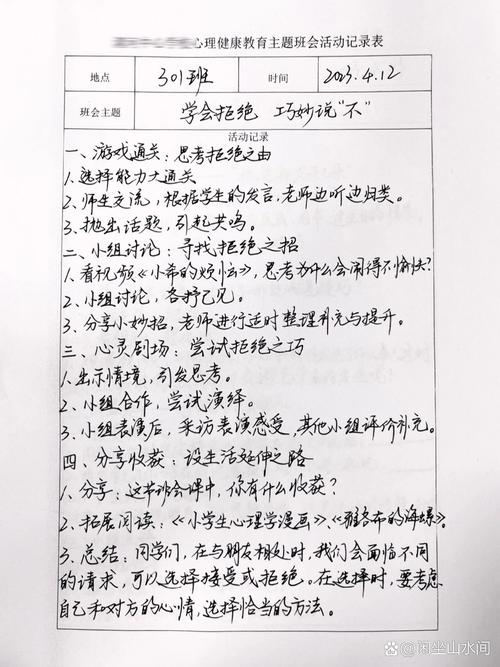 心理健康教育主题班会活动记录表
地点 301班 时间 2023.4.12
班会主题 学会拒绝 巧妙说“不”
活动记录
一、游戏通关：思考拒绝之由
1.选择能力大通关
2.师生交流，根据学生的发言，老师边听边归类。
3.抛出话题，引起共鸣。
二、小组讨论：寻找拒绝之招
1.看视频《小希的烦恼》，思考为什么会闹得不愉快？
2.小组讨论，各抒己见。
3.分享小妙招，老师进行适时整理补充与提升。
三、心灵剧场：尝试拒绝之巧
1.出示情境，引发思考。
2.小组合作，尝试演绎。
3.小组表演后，采访表演感受，其他小组评价补充。
四、分享收获：设生活延伸之路
1.分享：这节班会课中，你有什么收获？
2.拓展阅读：《小学生心理学漫画》《雅各布的海螺》。
3.总结：同学们，在与朋友相处时，我们会面临不同
的请求，可以选择接受或拒绝。在选择时，要考虑
自己和对方的心情，选择恰当的方法。
@闲坐山水间